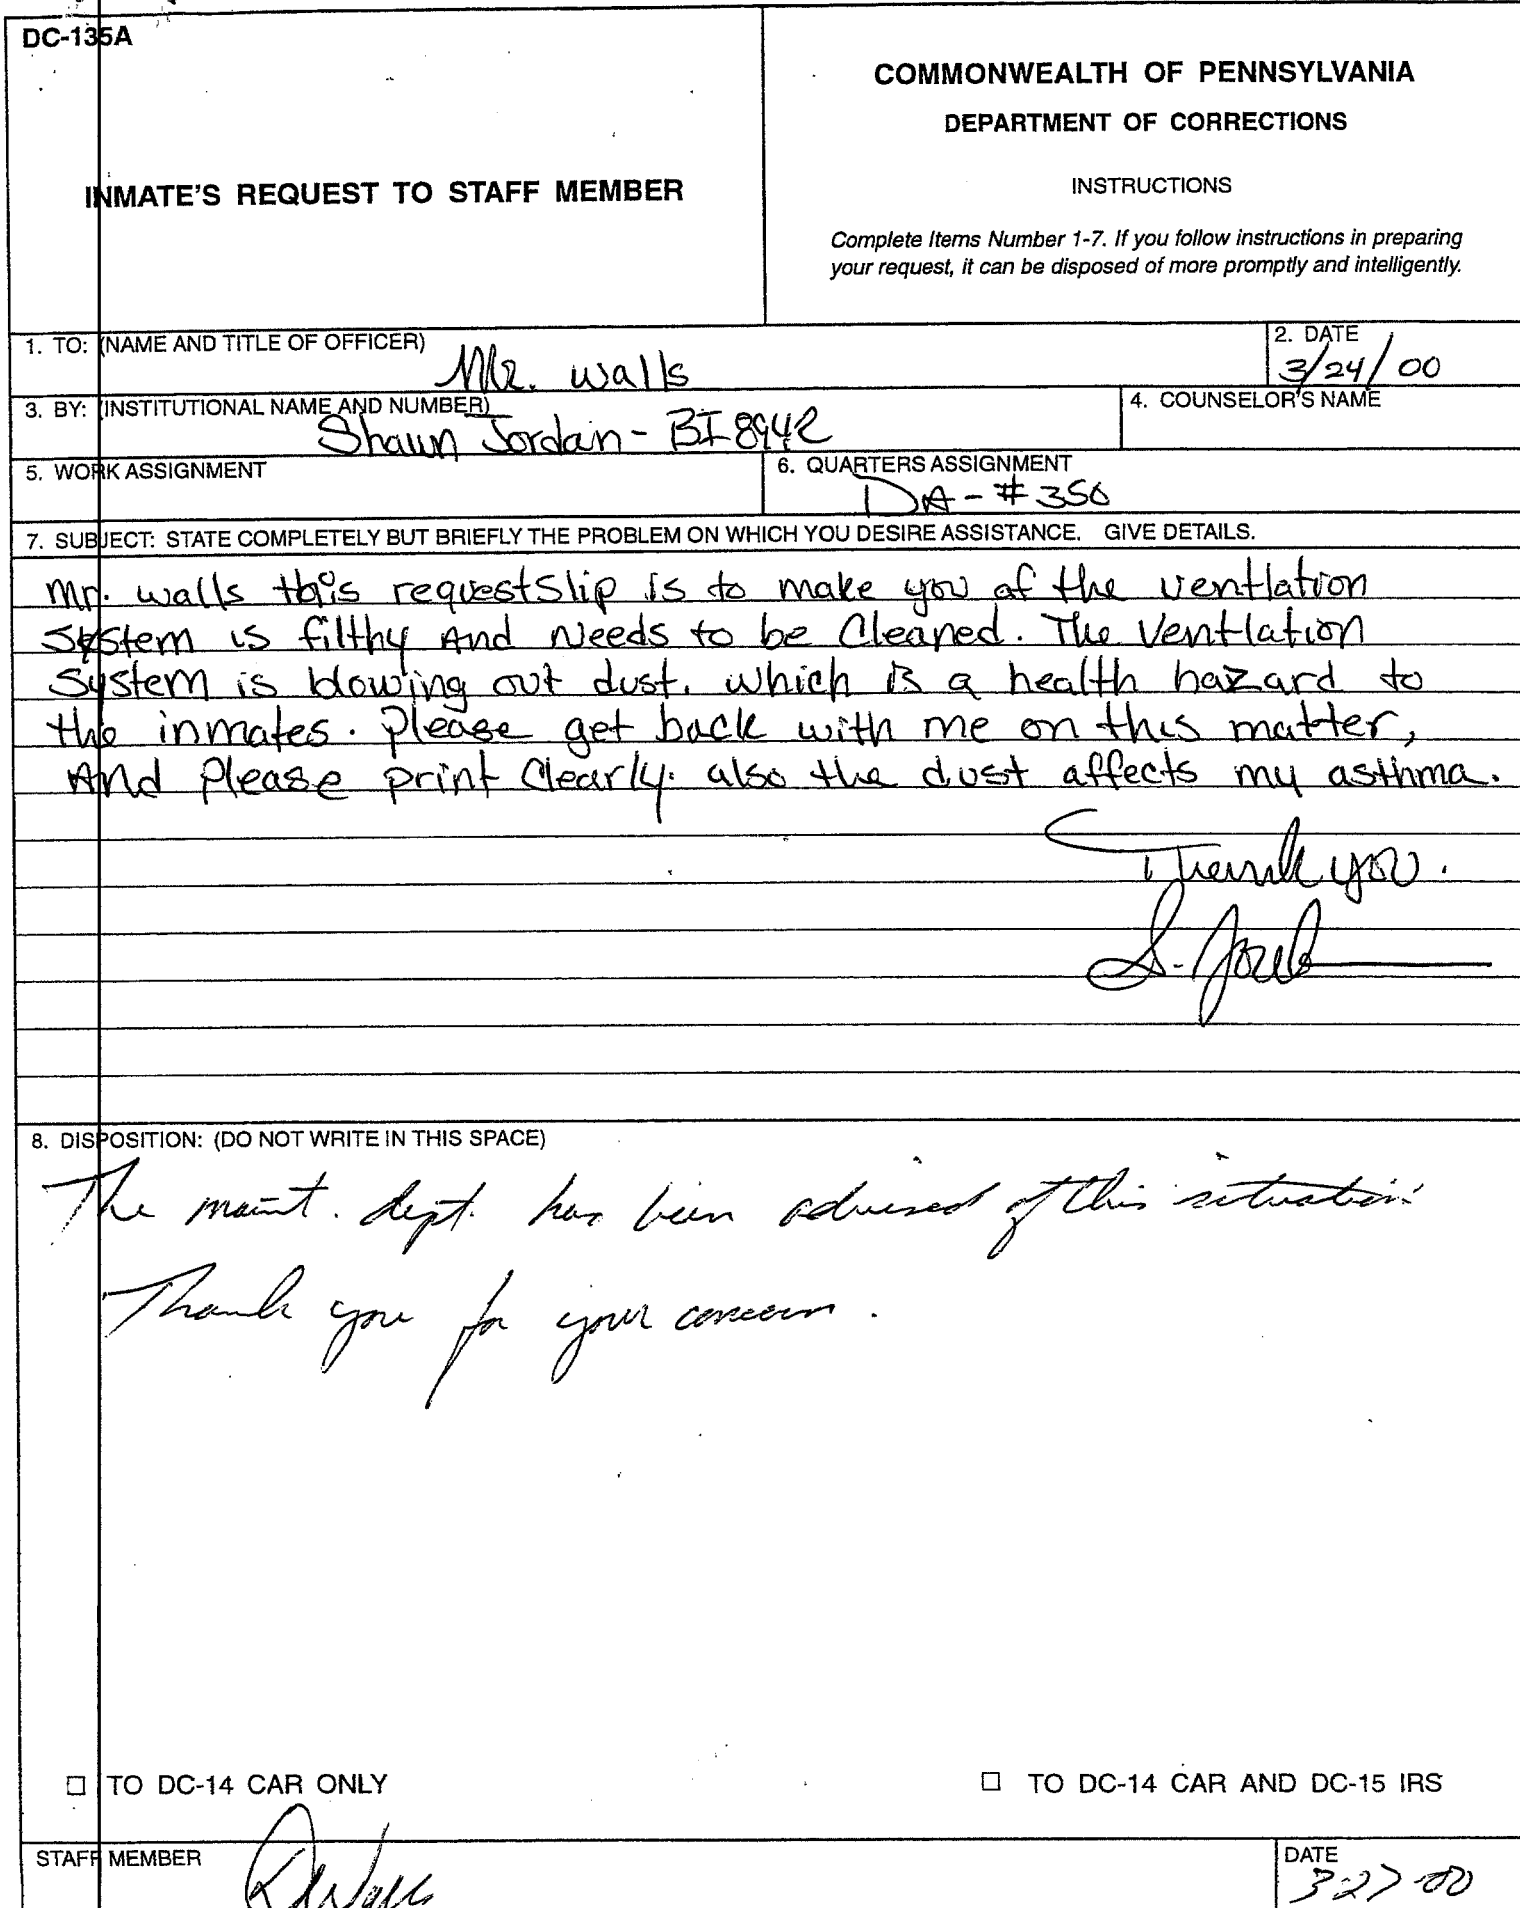 DC-135A
INMATE'S REQUEST TO STAFF MEMBER
COMMONWEALTH OF PENNSYLVANIA
DEPARTMENT OF CORRECTIONS
INSTRUCTIONS
Complete Items Number 1-7. If you follow instructions in preparing
your request, it can be disposed of more promptly and intelligently.
1. TO: (NAME AND TITLE OF OFFICER)
Mr. walls
2. DATE
3/24/00
3. BY: (INSTITUTIONAL NAME AND NUMBER)
Shawn Jordan - BI 8942
4. COUNSELOR'S NAME
5. WORK ASSIGNMENT
6. QUARTERS ASSIGNMENT
DA - # 350
7. SUBJECT: STATE COMPLETELY BUT BRIEFLY THE PROBLEM ON WHICH YOU DESIRE ASSISTANCE. GIVE DETAILS.
Mr. walls this request Slip is to make you of the ventlation
System is filthy And Needs to be Cleaned. The Ventlation
System is blowing out dust. which is a health hazard to
the inmates. Please get back with me on this matter,
And Please print Clearly. also the dust affects my asthma.
Thank you.
8. DISPOSITION: (DO NOT WRITE IN THIS SPACE)
The maint. dept. has been advised of this situation
Thank you for your concern.
TO DC-14 CAR ONLY
TO DC-14 CAR AND DC-15 IRS
STAFF MEMBER
DATE
3-27-00